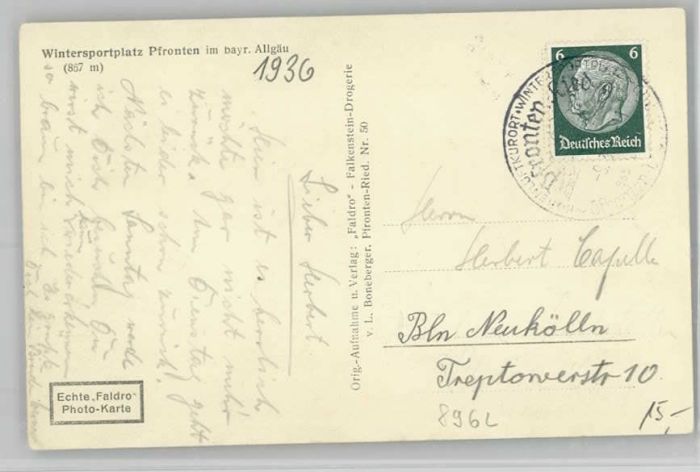 Wintersportplatz Pfronten im bayr. Allgäu
(867 m)
1936
Lieber Herbert
Hier ist es herrlich
möchte gar nicht mehr
zurück. Am Dienstag geht
es leider schon zurück!
Nächsten Sonntag werde
ich Dich
wirst mich kaum wiedererkennen
so braun bin ich. Es grüßt
Echte „Faldro“
Photo-Karte
Orig.-Aufnahme u. Verlag: „Faldro“ - Falkenstein-Drogerie
v. L. Boneberger, Pfronten-Ried, Nr. 50
6 6
Deutsches Reich
Pfronten
LUFTKURORT · WINTERSPORTPLATZ
Herrn
Herbert Capelle
Bln Neukölln
Treptowerstr 10
896L
15,-